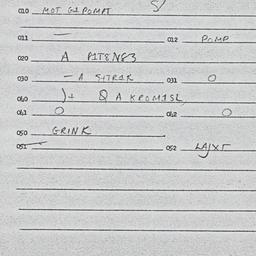 010 MOT G1 POMPT
011 — 012 POMP
020 A P1T8NG3
030 - A S4TRIK 031 0
040 )+ Q A KROMISL
041 0 042 0
050 GRINK
051 052 LAJXT